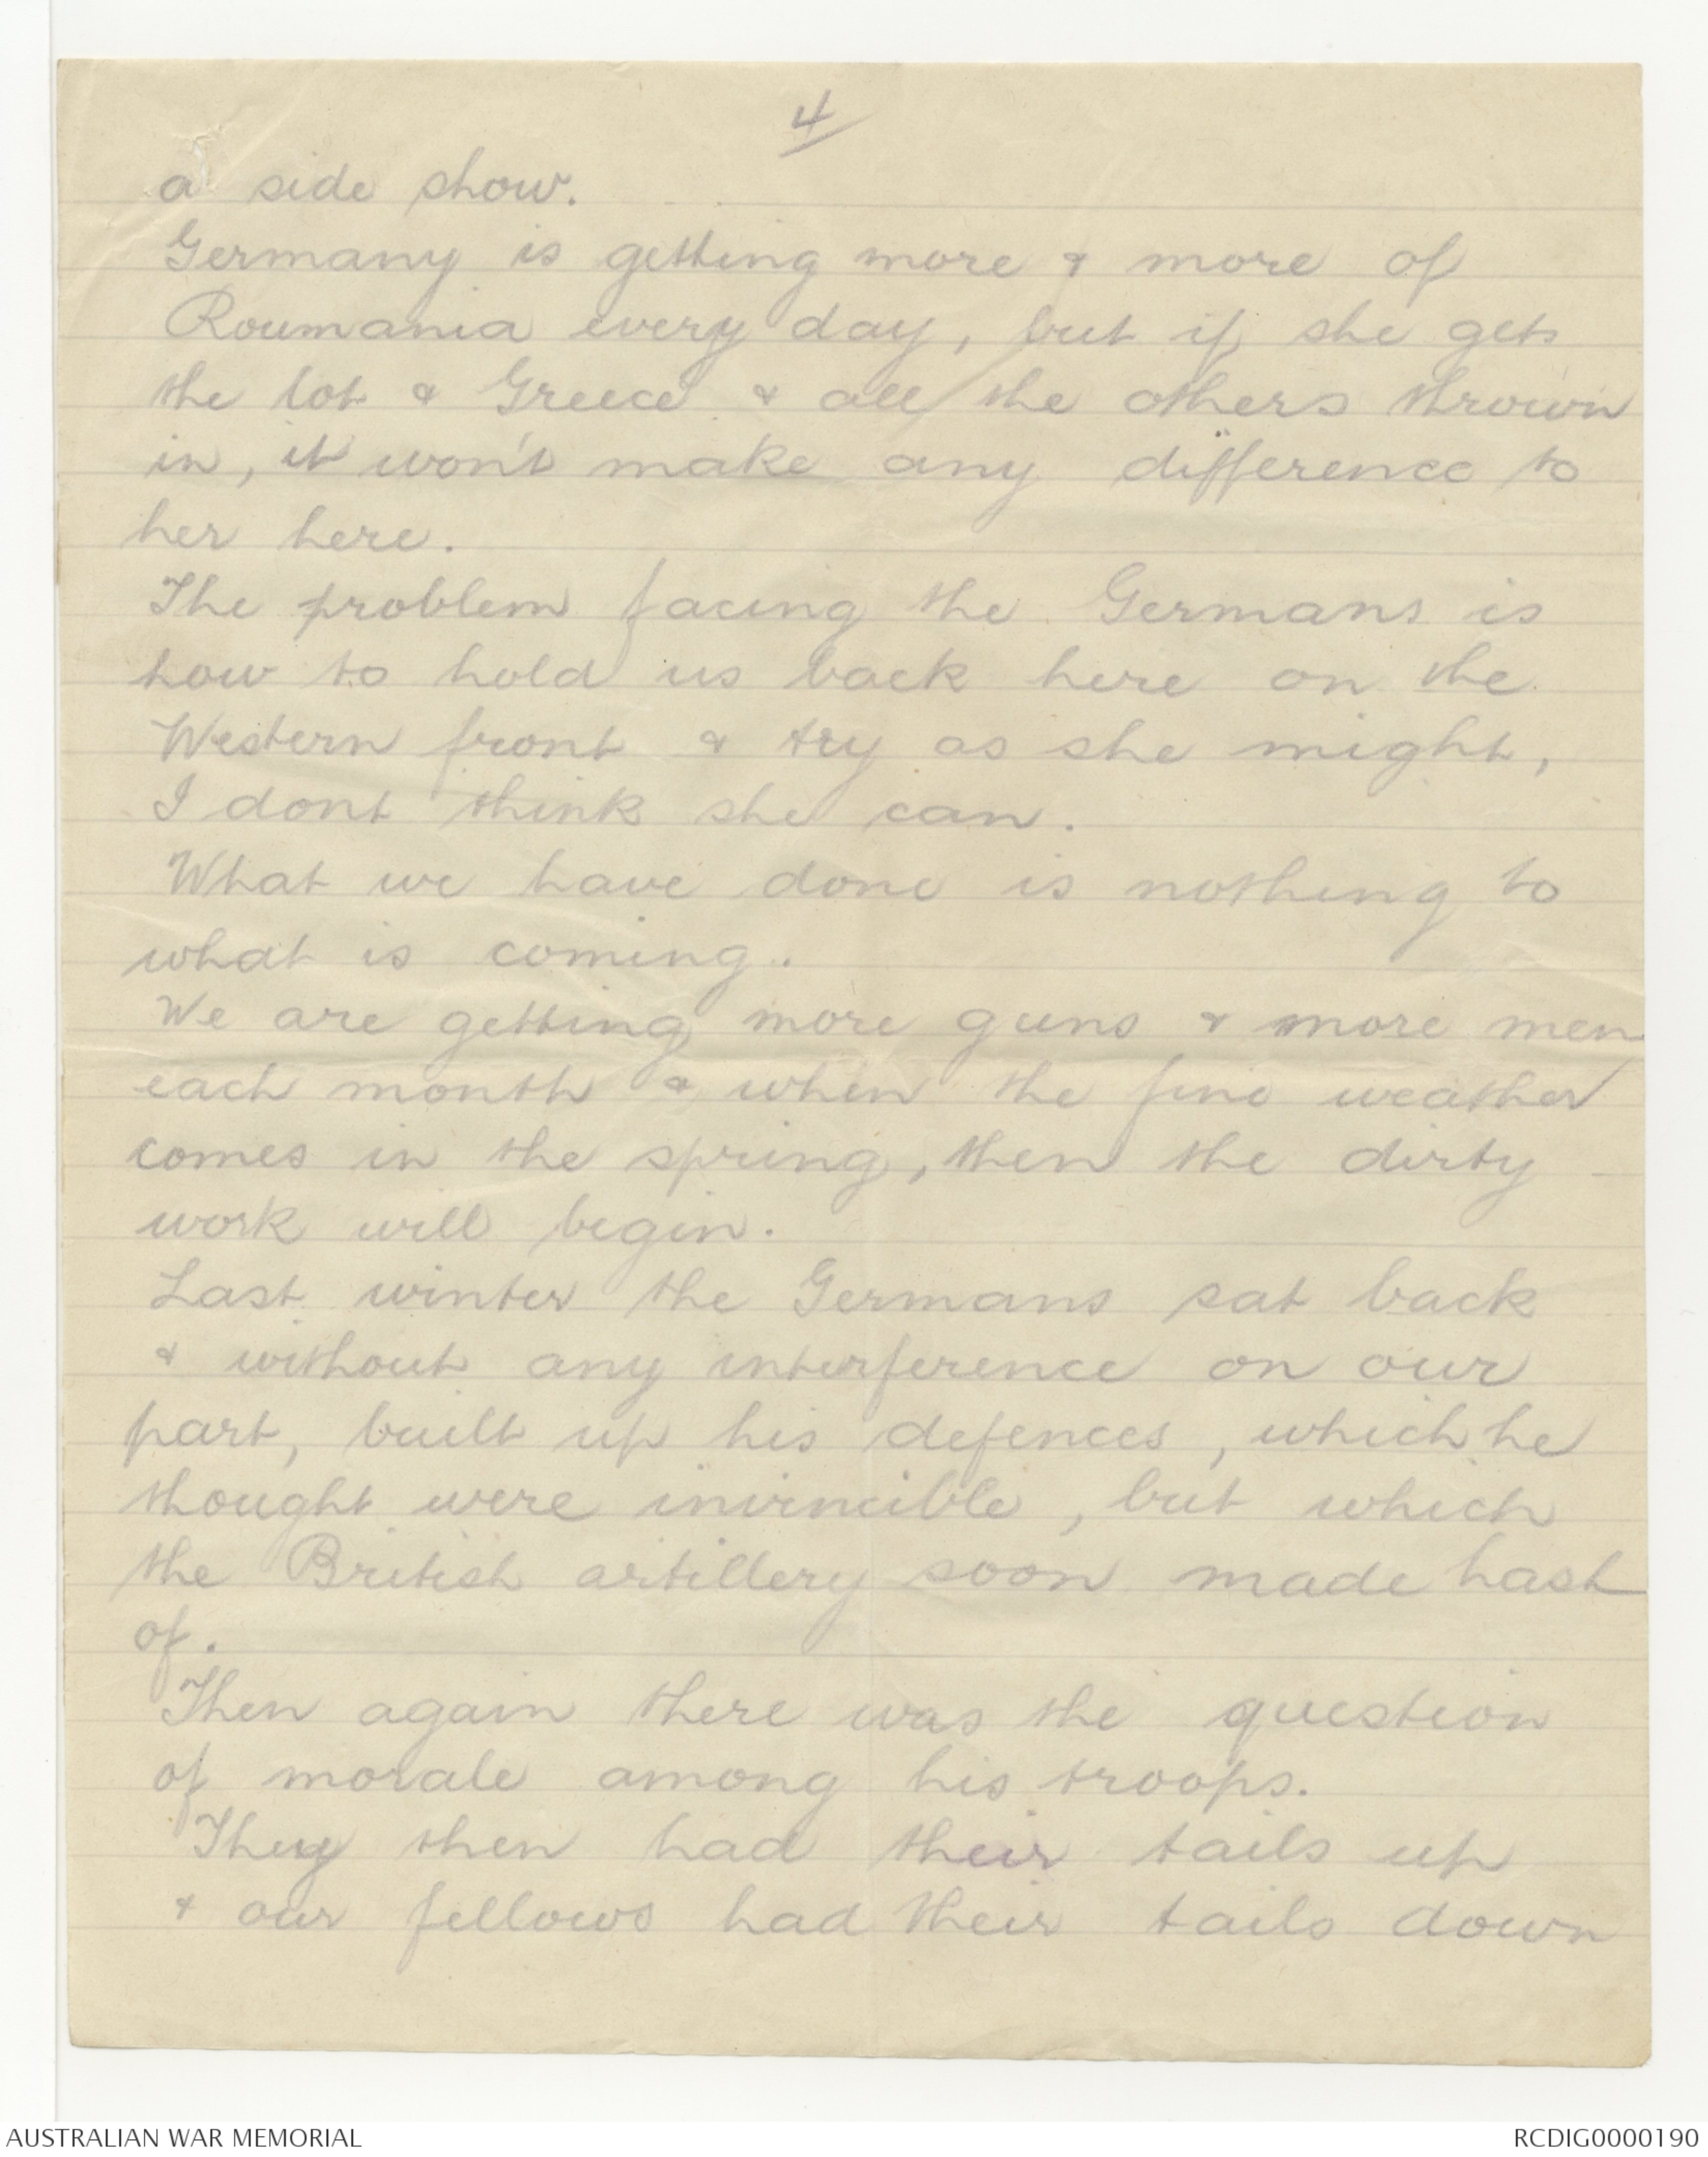 4
a side show.
Germany is getting more & more of
Roumania every day, but if she gets
the lot & Greece & all the others thrown
in, it won't make any difference to
her here.
The problem facing the Germans is
how to hold us back here on the
Western front & try as she might,
I dont think she can.
What we have done is nothing to
what is coming.
We are getting more guns & more men
each month & when the fine weather
comes in the spring, then the dirty
work will begin.
Last winter the Germans sat back
& without any interference on our
part, built up his defences, which he
thought were invincible, but which
the British artillery soon made hash
of.
Then again there was the question
of morale among his troops.
They then had their tails up
& our fellows had their tails down
AUSTRALIAN WAR MEMORIAL
RCDIG0000190